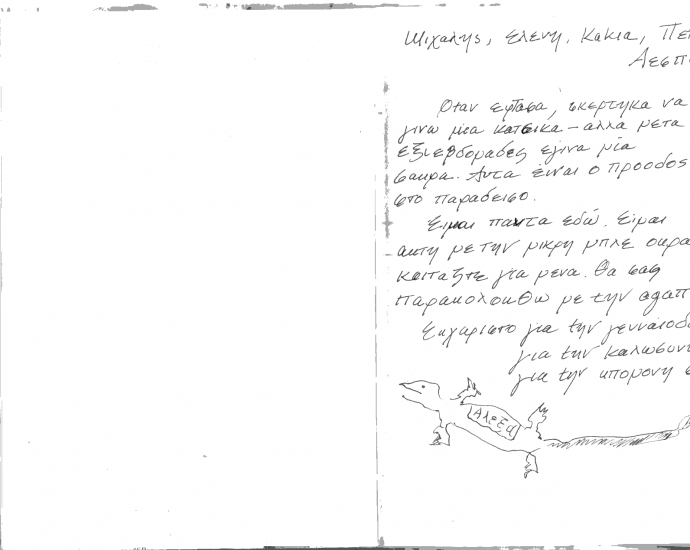 Μιχαλης, Ελενη, Κακια, Πε
Δεσπ
Οταν εφτασα, σκεφτηκα να
γινω μια κατσικα - αλλα μετα
εξι εβδομαδες εγινα μια
σαυρα. Αυτα ειναι ο προοδος
στο παραδεισο.
Ειμαι παντα εδώ. Ειμαι
αυτη με την μικρη μπλε ουρα
κοιταξτε για μενα. Θα σας
παρακολουθω με την αγαπ
Ευχαριστο για την γενναιοδ
για την καλωσυν
για την υπομονη
Αλεξα